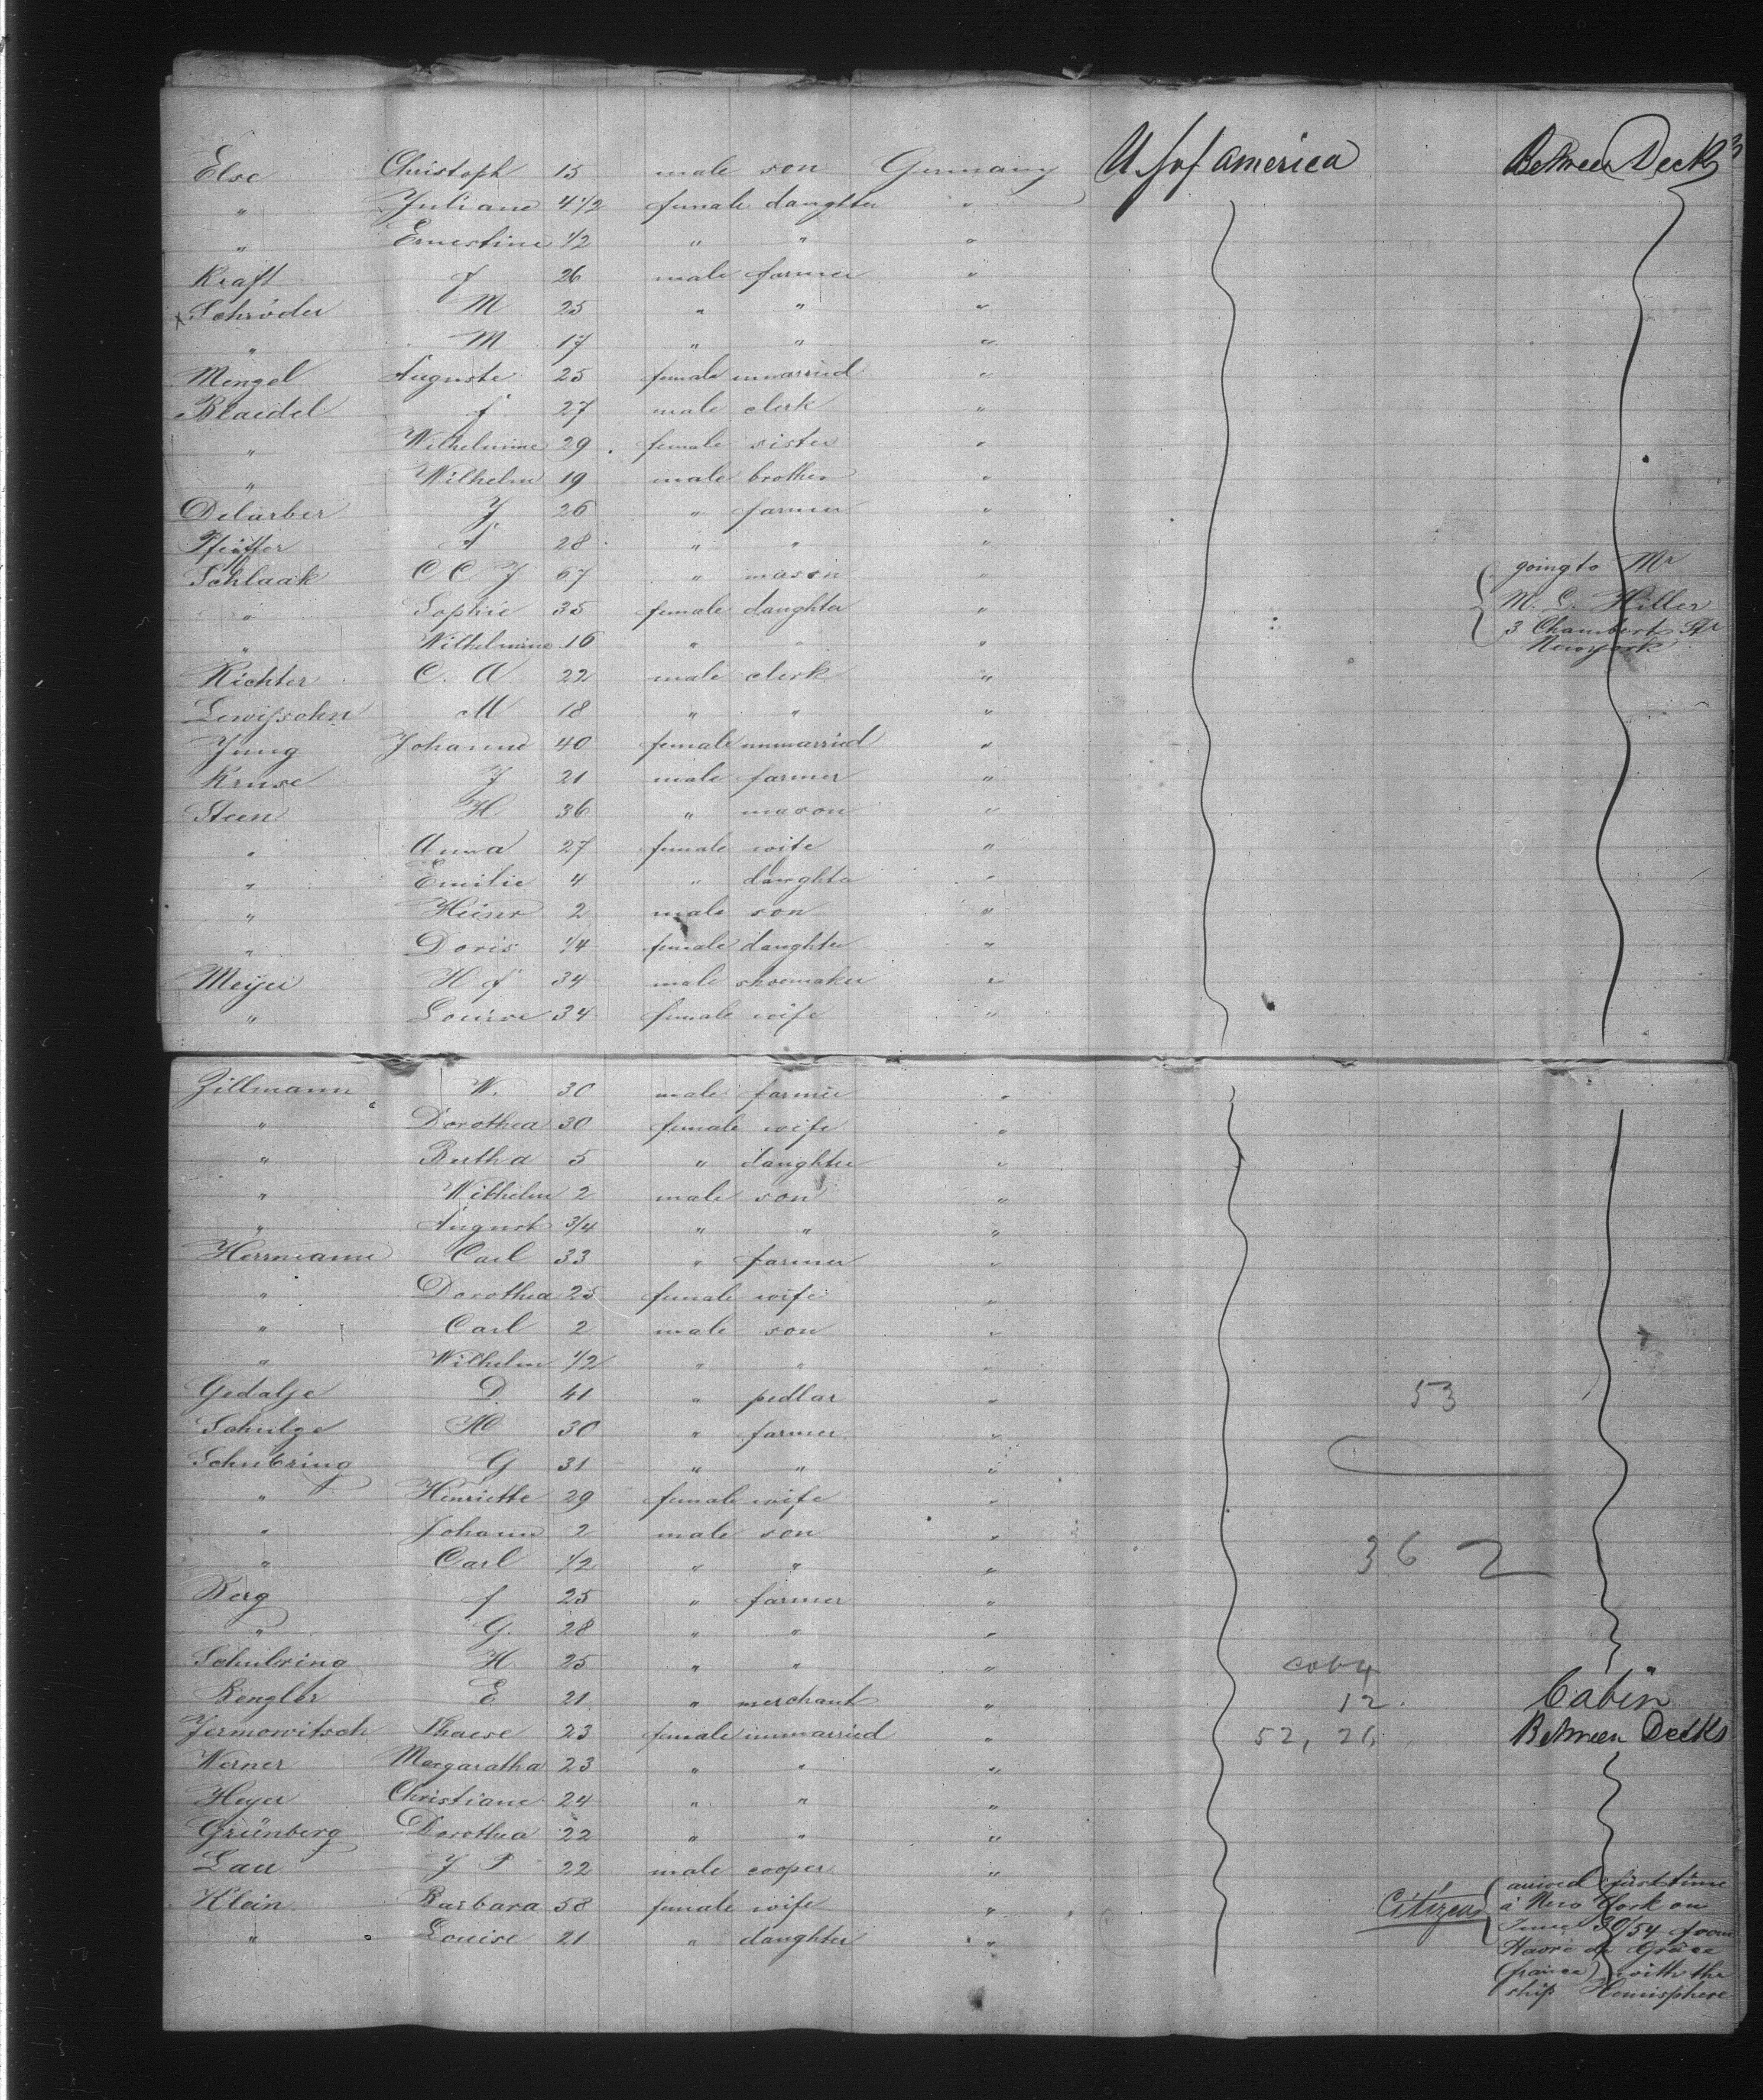 3
Else Christoph 15 male son Germany U S of America Between Decks
" Juliane 4 1/2 female daughter "
" Ernestine 1/2 " " "
Kraft J 26 male farmer "
x Schröder M 25 " " "
" M 17 " " "
Mengel Auguste 25 female unmarried "
Blaedel f 27 male clerk "
" Wilhelmine 29 female sister "
" Wilhelm 19 male brother "
Delarber J 26 " farmer "
Pfeiffer F 28 " " "
Schlaak C C J 67 " mason " going to Mr
" Sophie 35 female daughter " M. C. Hiller
" Wilhelmine 16 " " " 3 Chambers Str
Newyork
Richter C. A 22 male clerk "
Lewissohn M 18 " " "
Jung Johanne 40 female unmarried "
Kruse J 21 male farmer "
Steen H 36 " mason "
" Anna 27 female wife "
" Emilie 4 " daughter "
" Heinr 2 male son "
" Doris 1/4 female daughter "
Meyer H f 34 male shoemaker "
" Louise 34 female wife "
Zillmann W. 30 male farmer "
" Dorothea 30 female wife "
" Bertha 5 " daughter "
" Wilhelm 2 male son "
" August 3/4 " " "
Herrmann Carl 33 " farmer "
" Dorothea 25 female wife "
" Carl 2 male son "
" Wilhelm 1/2 " " "
Gedalje D 41 " pedlar " 53
Schulze 30 " farmer "
Schubring G 31 " " "
" Henriette 29 female wife "
" Johann 2 male son "
" Carl 1/2 " " " 36 2
Berg f 25 " farmer "
" G. 28 " " "
Schubring H 25 " " "
Bengler E 21 " merchant " 12. Cabin
Jermowitsch 23 female unmarried " 52, 26, Between Decks
Werner Margaratha 23 " " "
Heyer Christiane 24 " " "
Grünberg Dorothea 22 " " "
Lau J P 22 male cooper "
Klein Barbara 58 female wife " Citizens arrived first time
à New York on
" Louise 21 " daughter " June 30/54 from
Havre de Grâce
(france) with the
ship Hemisphere